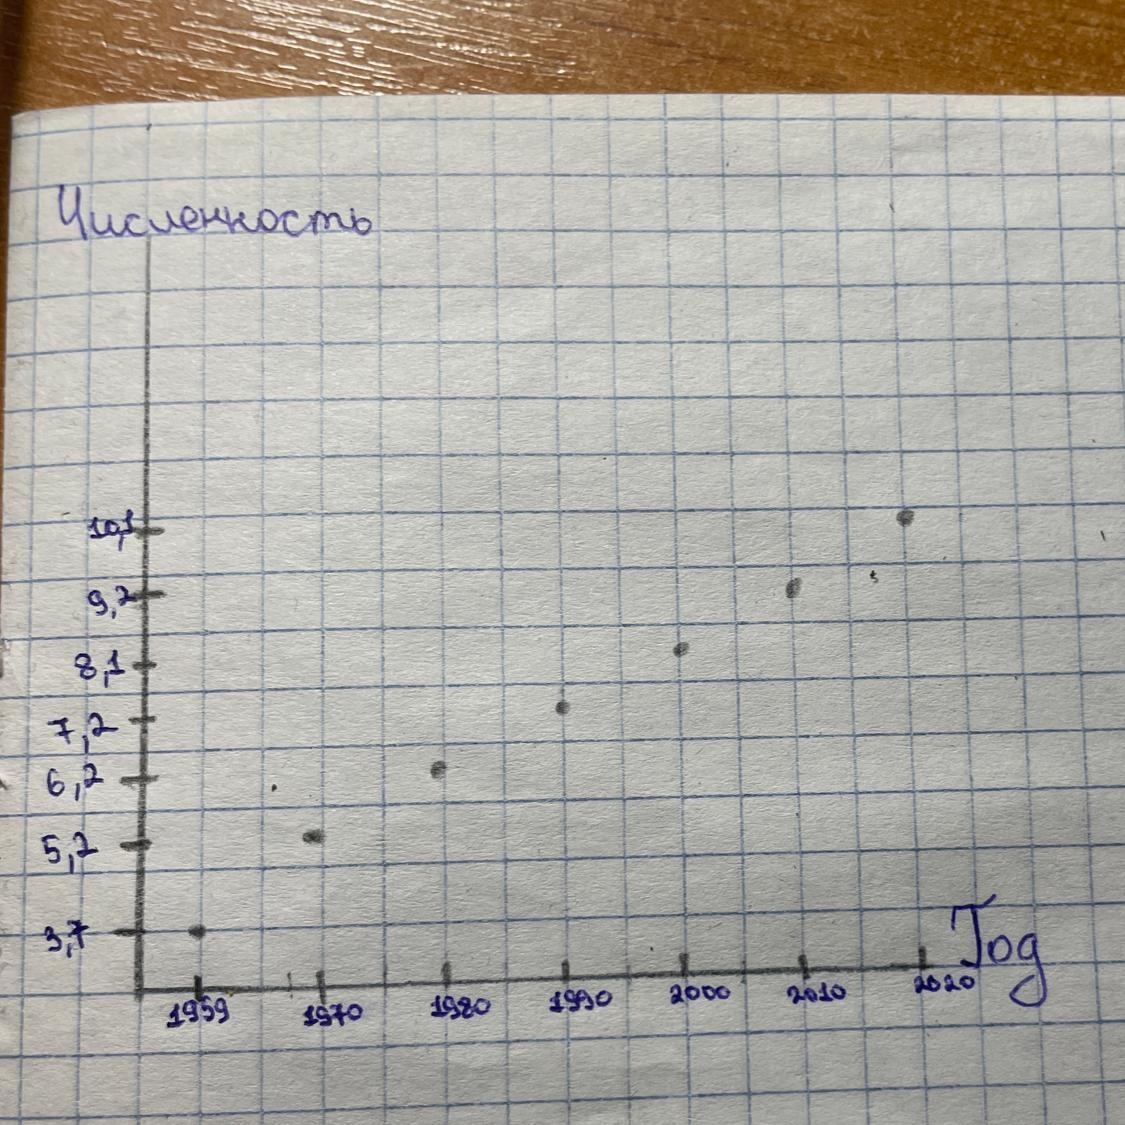 Численность
10,1
9,2
8,1
7,2
6,2
5,2
3,7
Год
1959 1970 1980 1990 2000 2010 2020